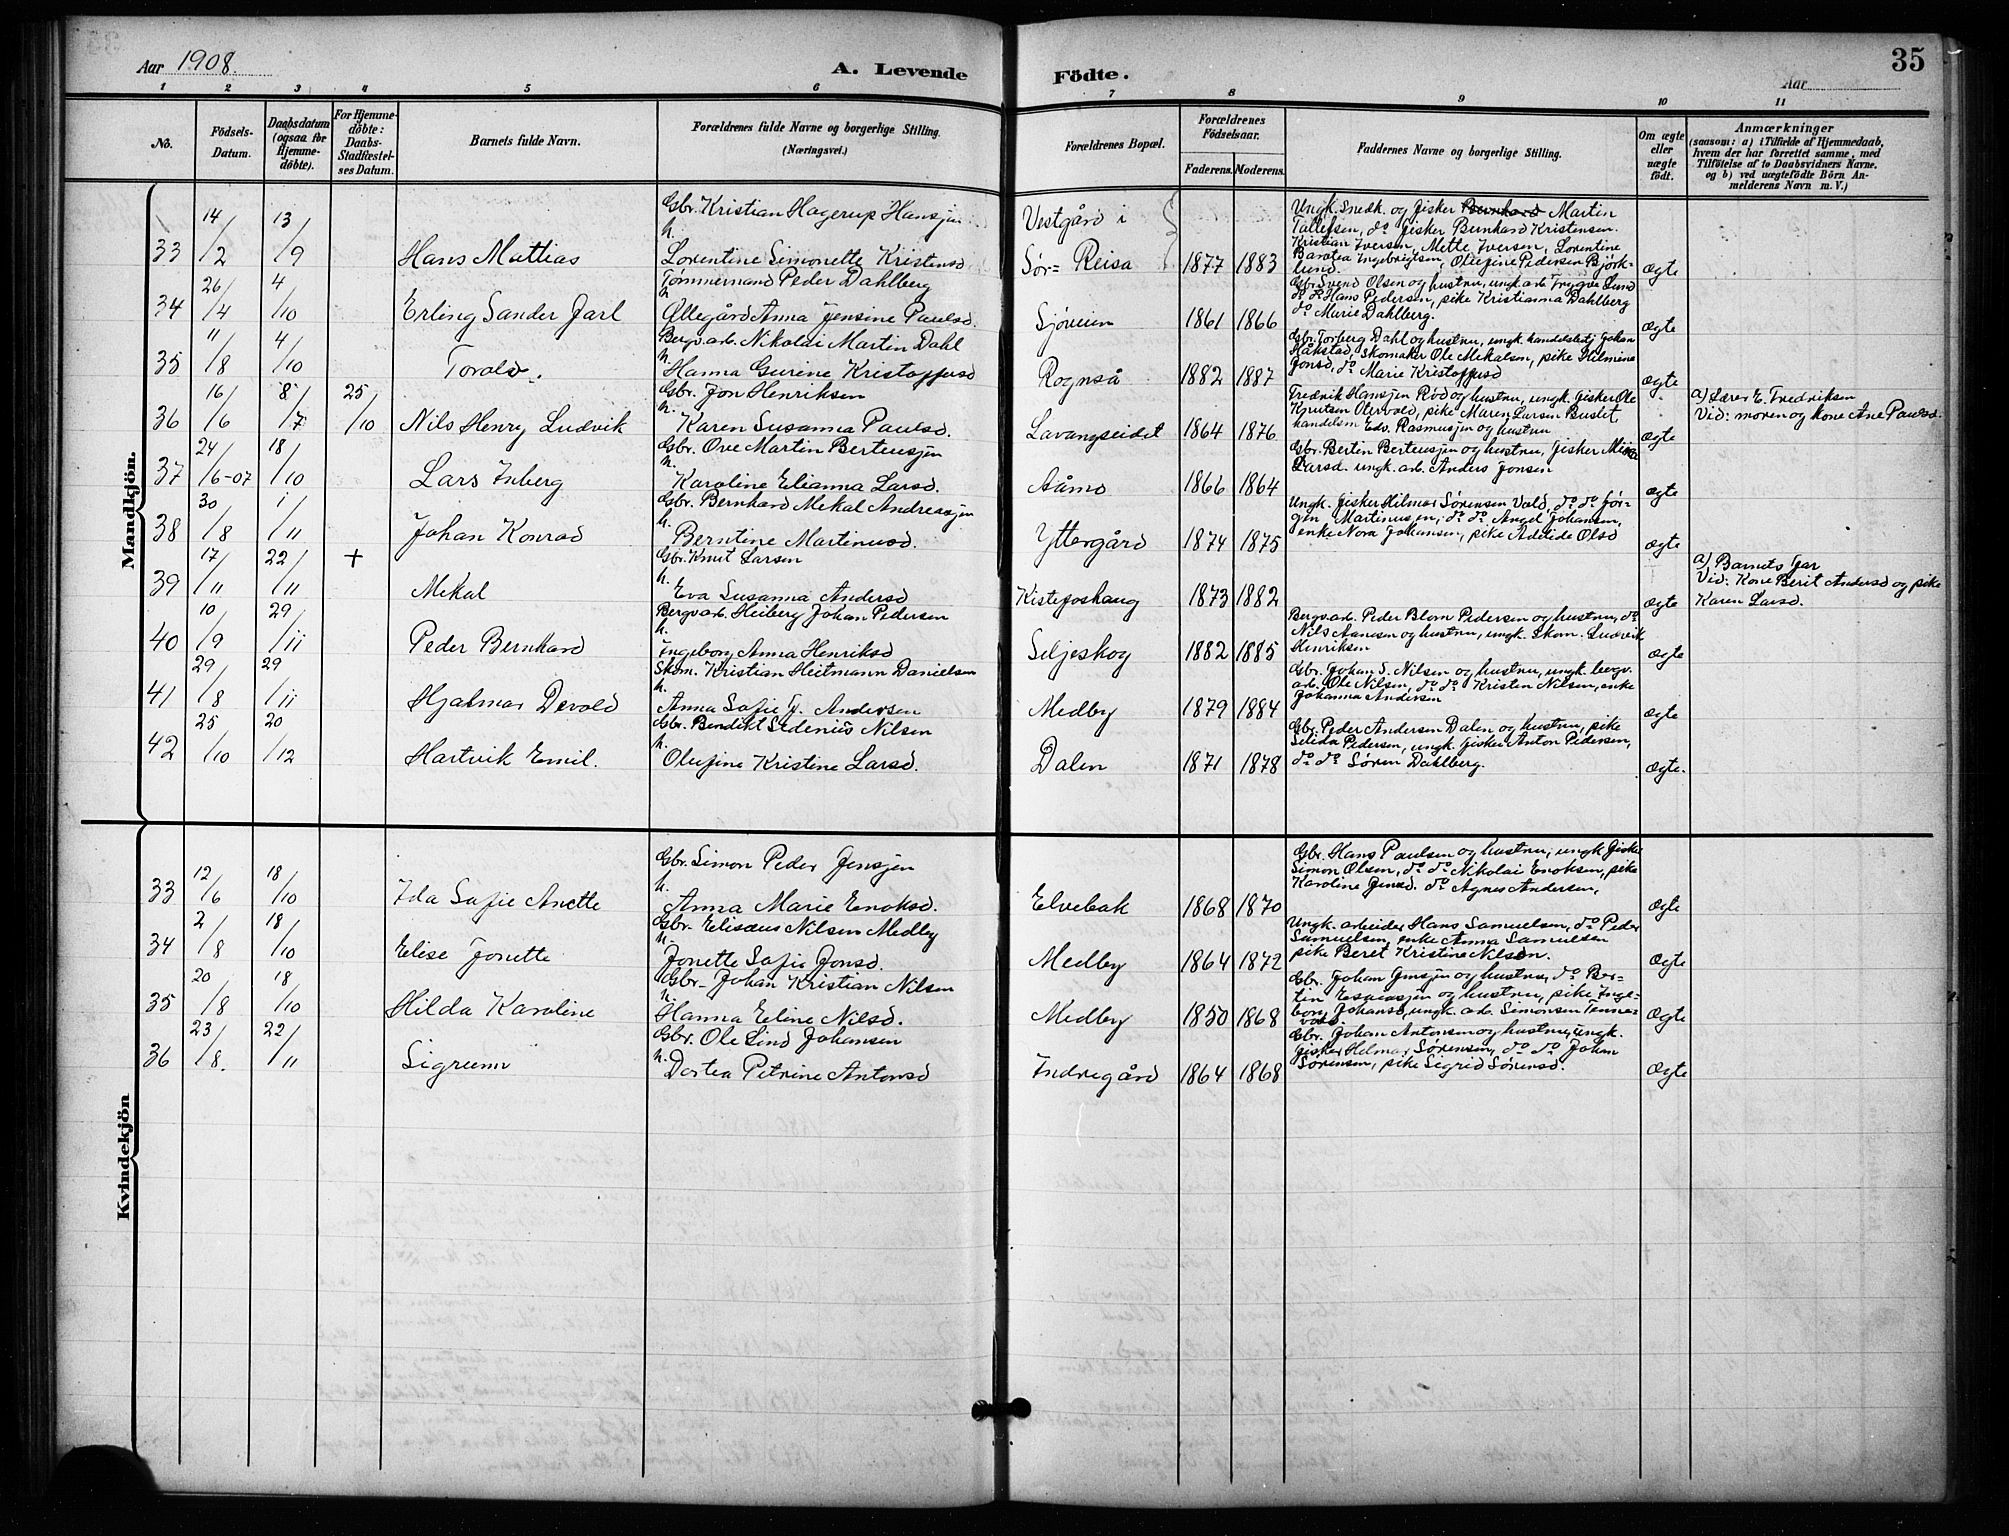 35
Aar 1908.
A. Levende Födte.
Aar
1 2 3 4 5 6 7 8 9 10 11
No.
Födsels-Datum.
Daabsdatum (ogsaa for Hjemme-döbte).
For Hjemme-döbte: Daabs-Stadfæstel-ses Datum.
Barnets fulde Navn.
Forældrenes fulde Navne og borgerlige Stilling. (Næringsvei.)
Forældrenes Bopæl.
Forældrenes Födselsaar.
Faderens. Moderens.
Faddernes Navne og borgerlige Stilling.
Om ægte eller uægte födt.
Anmærkninger
(saasom: a) i Tilfælde af Hjemmedaab, hvem der har forrettet samme, med Tilföielse af to Daabsvidners Navne. og b) ved uægtefödte Börn An-melderens Navn m. V.)
Mandkjön.
33 14/2 13/9 Hans Mattias
Gbr. Kristian Hagerup Hansen
h. Lorentine Simonette Kristensd.
Vestgård i Sør=Reisa 1877 1883
Ungk. Snedk. og fisker Bernhard Martin
Tollefsen, do fisker Bernhard Kristensen.
Kristian Iversen, Mette Iversen, Lorentine
Barotea Ingebrigtsen, Olufine Pedersen Björk-
lund.
Ægte
34 26/4 4/10 Erling Sander Jarl
Tømmermand Peder Dahlberg
h. Ollegård Anna Jensine Paulsd.
Sjøveien 1861 1866
Gbr. Svend Olsen og hustru, ungk. arb. Trygve Lund
do do Hans Pedersen, pike Kristianna Dahlberg
do Marie Dahlberg.
Ægte
35 11/8 4/10 Torald.
Bergv.arb. Nikolai Martin Dahl
h. Hanna Gurine Kristoffersd
Rognså 1882 1887
Gbr. Torberg Dahl og hustru, ungk. handelsbetj. Johan
Håkstad, skomaker Ole Mikalsen, pike Hilmine
Jonsd, do Marie Kristoffersd
Ægte
36 16/6 8/7 25/10 Nils Henry Ludvik
Gbr. Jon Henriksen
h. Karen Susanna Paulsd.
Lavangseidet 1864 1876
Fredrik Hansen Rød og hustru, ungk. fisker Ole
Knutsen Olervold, pike Maren Larsen Buslet,
handelsm Edv. Rasmussen og hustru
Ægte
a) Lærer E. Fredriksen
Vid: moren og kone Ane Paulsd.
37 24/6-07 18/10 Lars Inberg
Gbr. Ove Martin Berteussen
h. Karoline Elianna Larsd.
Aåmo 1866 1864
Gbr. Bertin Berteussen og hustru, fisker
Larsd. ungk. arb. Anders Jonsen
Ægte
38 30/8 1/11 Johan Konrad
Gbr. Bernhard Mekal Andreassen
h. Berntine Martinusd.
Yttergård 1874 1875
Ungk. fisker Hilmar Sørensen Vald, do do Jør-
gen Martinussen, do do Angel Johansen,
enke Nora Johansen, pike Adelide Olsd
Ægte
39 17/11 22/11 + Mekal
Gbr. Knut Larsen
h. Eva Susanna Andersd
Kistefoshaug 1873 1882
Ægte
a) Barnets far
Vid: Kone Berit Andersd og pike
Karen Larsd.
40 10/9 29/11 Peder Bernhard
Bergv.arb. Heiberg Johan Pedersen
h. Ingeborg Anna Henriksd
Seljeskog 1882 1885
Bergv.arb. Peder Blom Pedersen og hustru, do
Nils Hansen og hustru, ungk. skom. Ludvik
Henriksen
Ægte
41 29/8 29/11 Hjalmar Devold
Skom. Kristian Heitmann Danielsen
h. Anna Sofie J. Andersen
Medby 1879 1884
Gbr. Johan S. Nilsen og hustru, ungk. bergv.
arb. Ole Nilsen, do do Kristen Nilsen, enke
Johanna Andersen
Ægte
42 25/10 20/12 Hartvik Emil.
Gbr. Bendikt Sedenius Nilsen
h. Olufine Kristine Larsd.
Dalen 1871 1878
Gbr. Peder Andersen Dalen og hustru, pike
Selida Pedersen, ungk. fisker Anton Pedersen,
do do Søren Dahlberg.
Ægte.
Kvindekjön
33 12/6 18/10 Ida Sofie Anette
Gbr. Simon Peder Jensen
h. Anna Marie Enoksd.
Elvebak 1868 1870
Gbr. Hans Paulsen og hustru, ungk fisker
Simon Olsen, do do Nikolai Enoksen, pike
Karoline Jensd. do Agnes Andersen,
Ægte
34 2/8 18/10 Elise Jonette
Gbr. Elisæus Nilsen Medby
h. Jonette Sofie Jonsd.
Medby 1864 1872
Ungk. arbeider Hans Samuelsen, do Peder
Samuelsen, enke Anna Samuelsen
pike Beret Kristine Nilsen.
Ægte
35 20/8 18/10 Hilda Karoline
Gbr. Johan Kristian Nilsen
h. Hanna Eline Nilsd.
Medby 1850 1868
Gbr. Johan Jensen og hustru, do Ber-
tin Esaiassen og hustru, pike Inge-
borg Johansd, ungk. arb. Simonsen Tenne-
vold.
Ægte
36 23/8. 22/11 Sigrunn
Gbr. Ole Lind Johansen
h. Dortea Petrine Antonsd
Indregård 1864 1868
Gbr. Johan Antonsen og hustru, ungk.
fisker Helmar Sørensen, do do Johan
Sørensen, pike Sigrid Sørensd.
Ægte